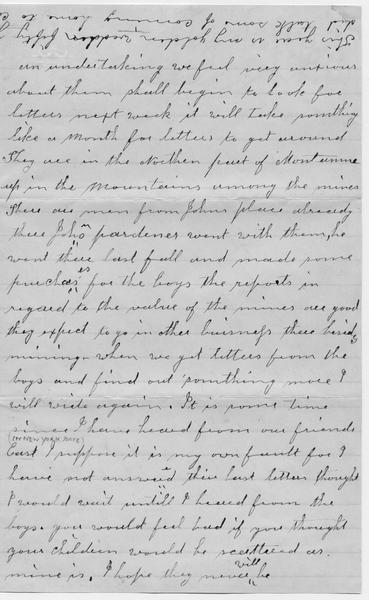 an undertaking we feel very anxious
about them shall begin to look for
letters next week it will take somthing
like a month for letters to get around
They are in the Northen part of Montanna
up in the Mountains among the mines
There are men from Johns place already
there John's pardener went with them, he
went there last fall and made some
purchases for the boys the reports in
regard to the value of the mines are good
they expect to go in other buisness there besides
mining. when we get letters from the
boys and find out somthing more I
will write again. It is some time
since I have heard from our friends
(IN NEW YORK STATE)
East I suppose it is my own fault for I
have not answerd their last letters thought
I would wait untill I heard from the
boys. you would feel bad if you thought
your children would be scattered as
mine is. I hope they never will be
This
did talk some of comming home to